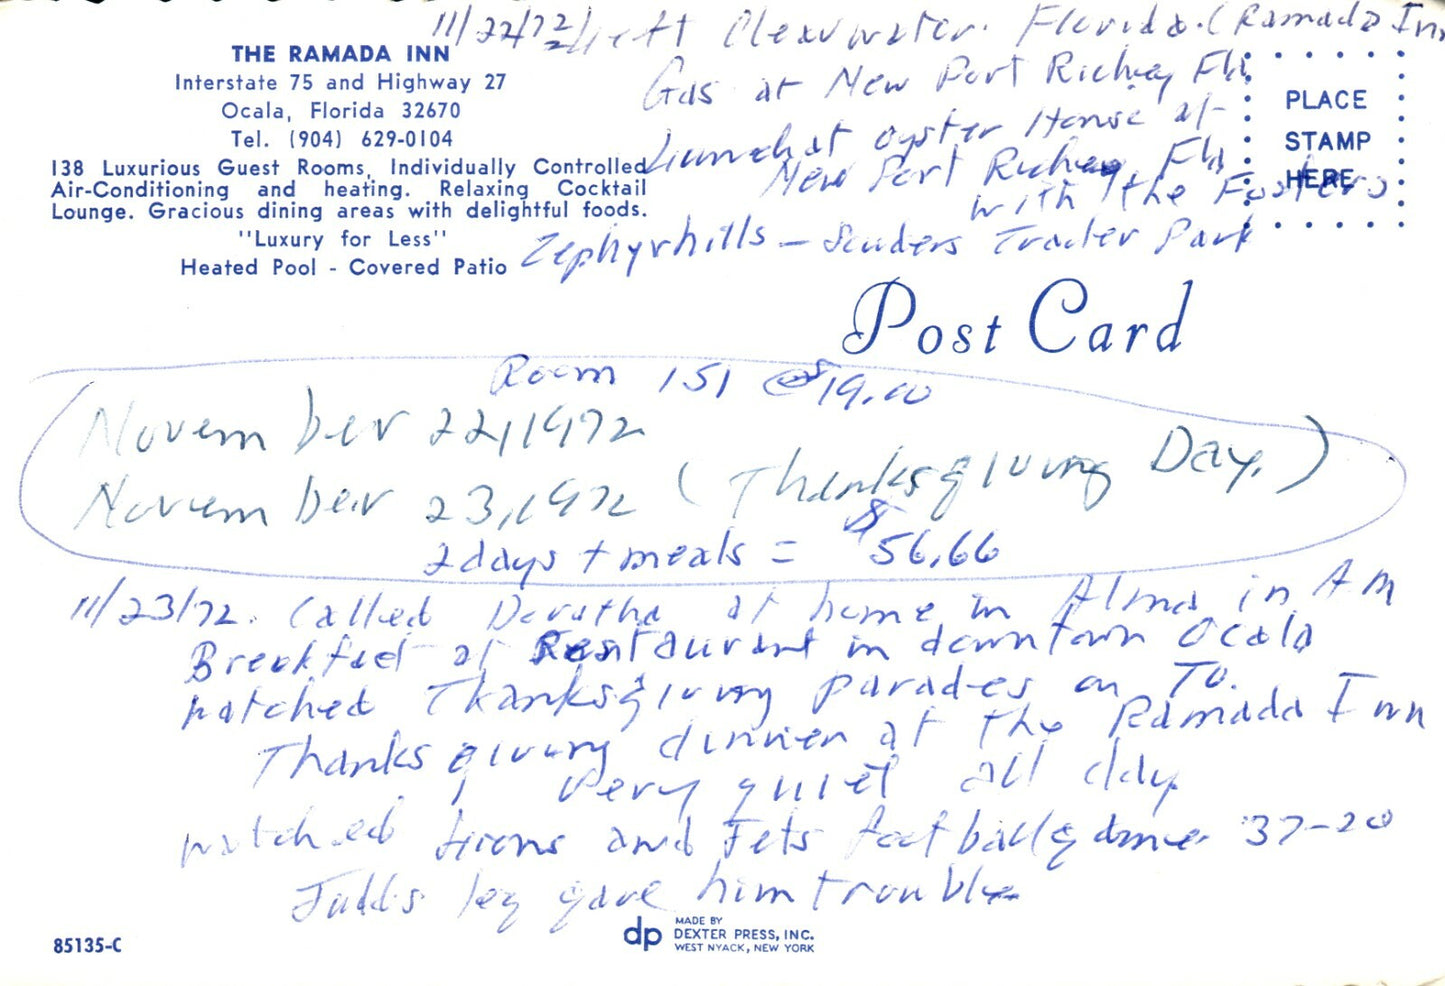 11/22/72 left Clearwater. Florida. (Ramada Inn
THE RAMADA INN
Interstate 75 and Highway 27
Ocala, Florida 32670
Tel. (904) 629-0104
138 Luxurious Guest Rooms, Individually Controlled
Air-Conditioning and heating. Relaxing Cocktail
Lounge. Gracious dining areas with delightful foods.
"Luxury for Less"
Heated Pool - Covered Patio
Gas at New Port Richey Fla
Lunch at Oyster House at
New Port Richey Fla
with the Fosters
Zephyrhills - Trailer Park
PLACE
STAMP
HERE
Post Card
Room 151 @ $19.00
November 22, 1972
November 23, 1972 (Thanksgiving Day.)
2 days + meals = $56.66
11/23/72. Called Doratha at home in Alma in AM
Breakfast at Restaurant in downtown Ocala
watched Thanksgiving parades on TV.
Thanksgiving dinner at the Ramada Inn
very quiet all day
watched Lions and Jets football game 37-20
Judd's leg gave him trouble
85135-C
dp
MADE BY
DEXTER PRESS, INC.
WEST NYACK, NEW YORK